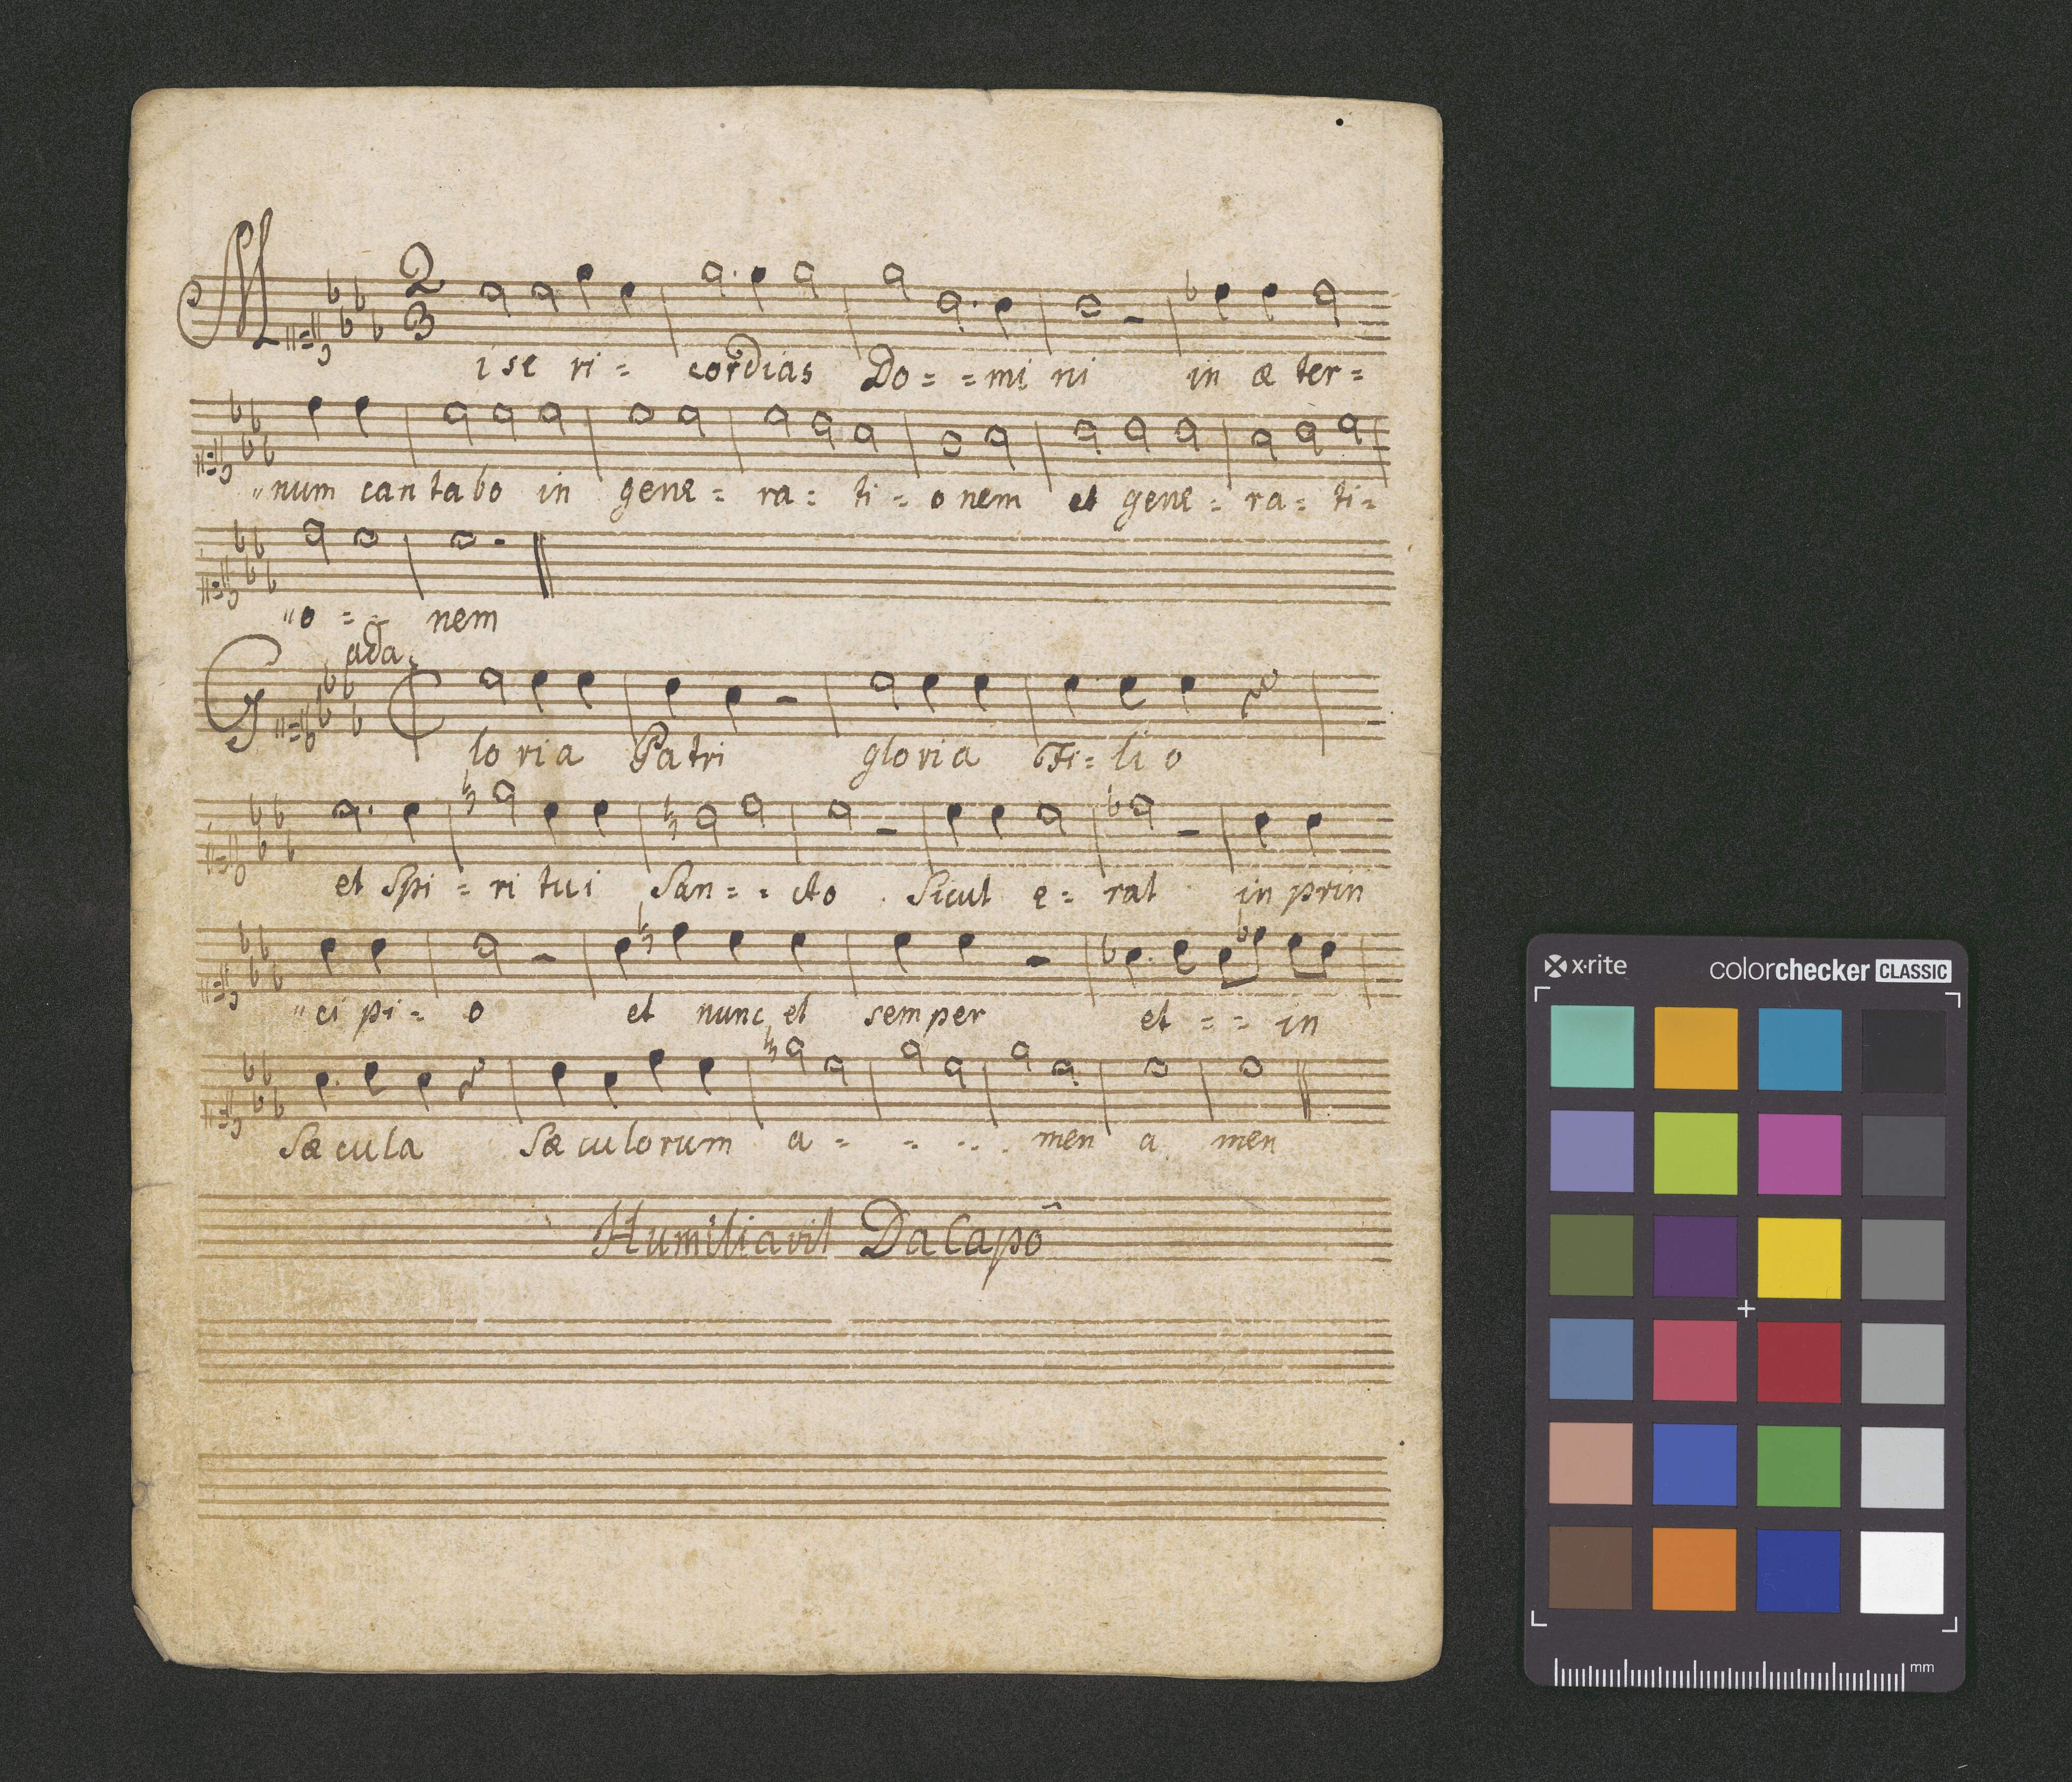 M 2 3
i se ri = cordias Do = = mi ni in æ ter =
„num can ta bo in gene = ra = ti = o nem et gene = ra = ti =
„o = = nem
ada.
G lo ri a Patri gloria Fi = li o
et Spi = ri tui San = = cto Sicut e = rat in prin
„ci pi = o et nunc et semper et = = in
Sæ cu la Sæ cu lo rum a = = . . men a men
Humiliavit Da Capo
x·rite colorchecker CLASSIC
mm